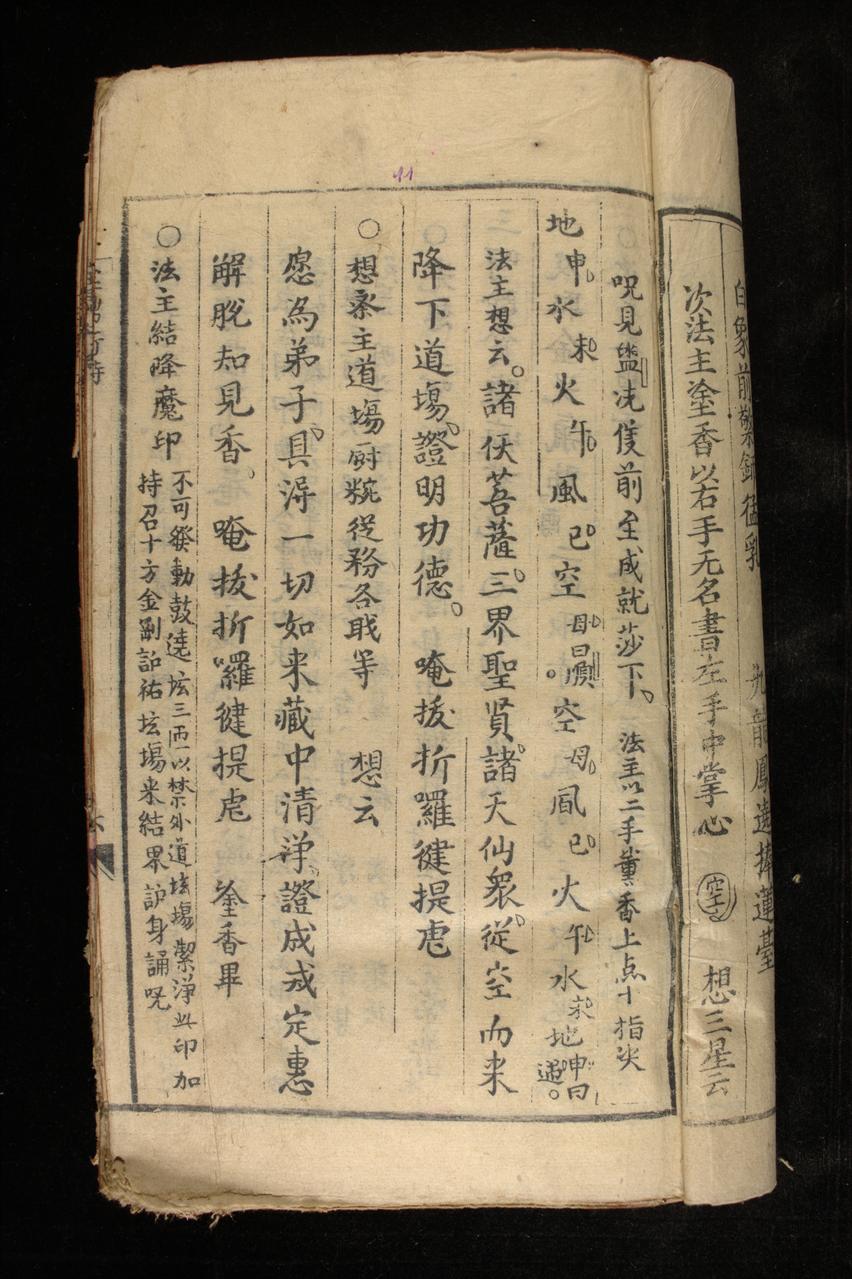 白象前
九龍鳳遶捧蓮臺
次法主塗香以右手无名書左手中掌心 空 想三星云
11
呪見盥洗隻前至成就莎下 法主以二手薰香上点十指尖
地申水未火午風巳空母曰 空母風巳火午水未地申曰
法主想云諸伏菩薩三界聖賢諸天仙衆從空而来
降下道塲證明功德 唵拔折囉健提虐
〇想斎主道塲厨粮從務各戝等 想云
愿為弟子具淂一切如来藏中清淨證成戒定惠
解脫知見香 唵拔折囉健提虐 塗香畢
〇法主結降魔印 不可發動鼓遶坛三匝以禁外道坛塲潔淨此印加
持召十方金剛 祐坛塲来結界 身誦呪